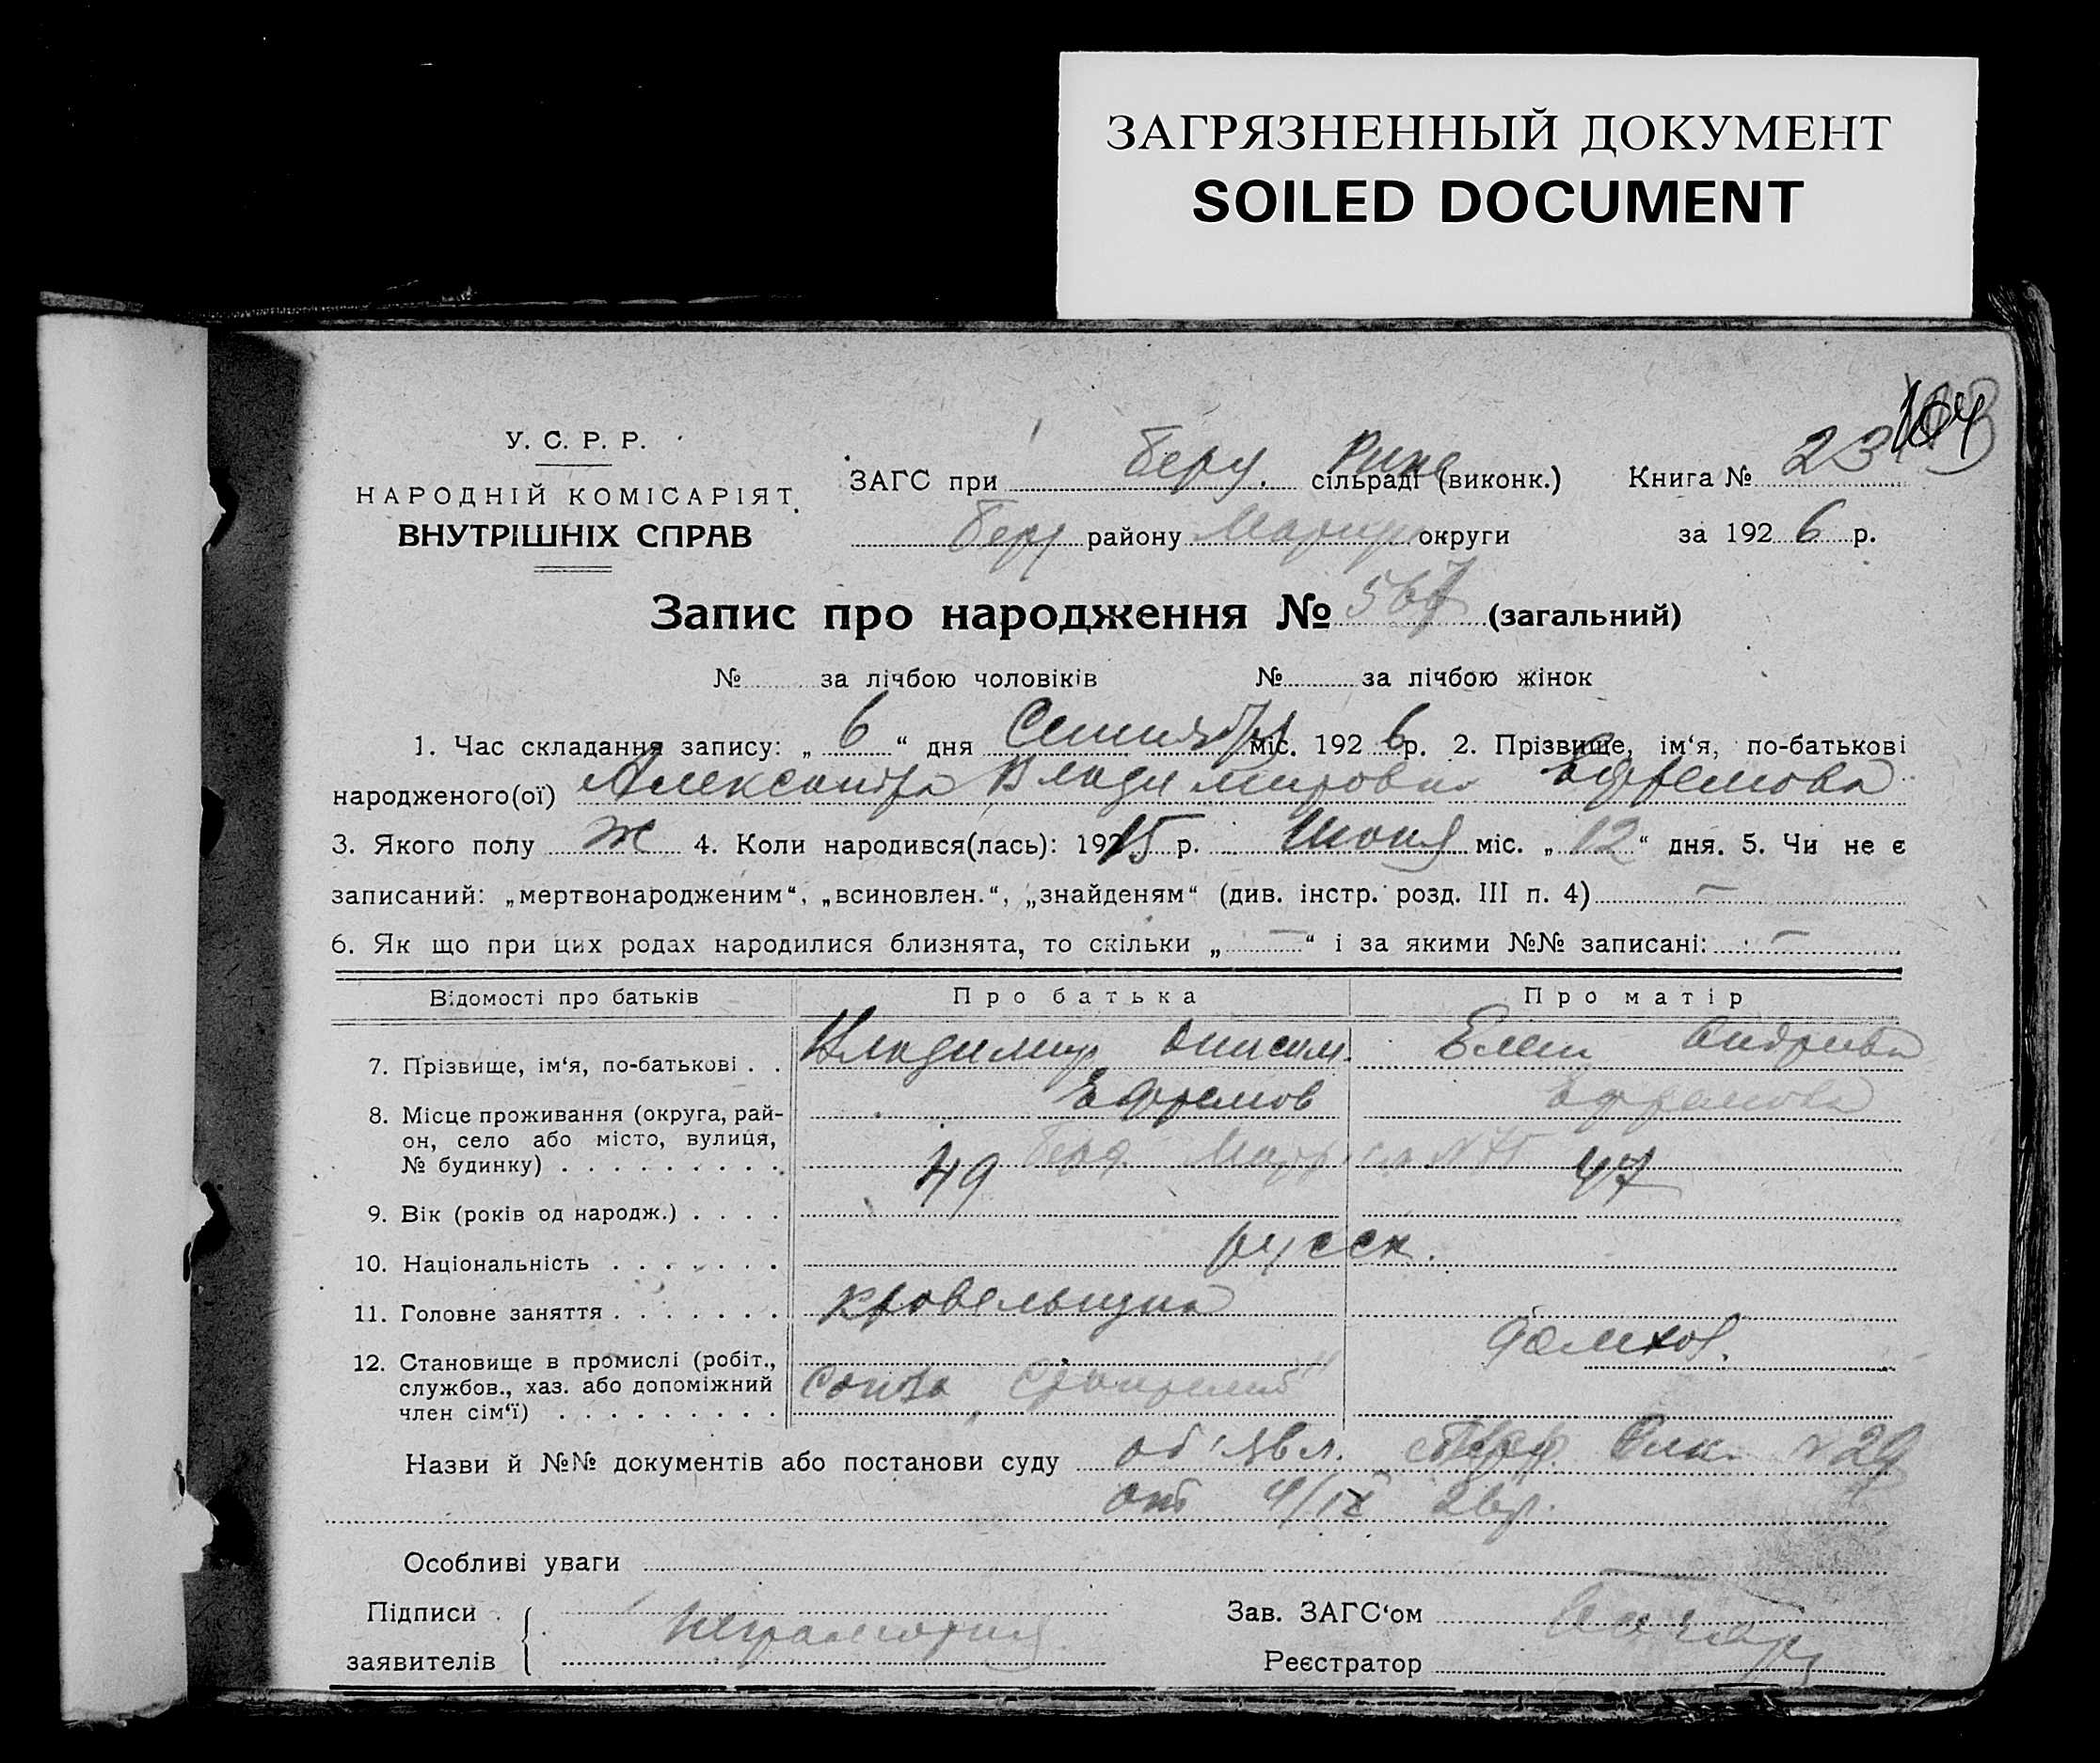 ЗАГРЯЗНЕННЫЙ ДОКУМЕНТ
SOILED DOCUMENT
У. С. Р. Р.
НАРОДНІЙ КОМІСАРІЯТ
ВНУТРІШНІХ СПРАВ
ЗАГС при сільраді (виконк.) Книга № 23
району Мариуп округи за 192 6 р.
Запис про народження № 567 (загальний)
№ за лічбою чоловіків № за лічбою жінок
1. Час складання запису: „ 6 “ дня Сентября міс. 192 6 р. 2. Прізвище, ім‘я, по-батькові
народженого(ої) Александра Владимировна Ефремова
3. Якого полу ж 4. Коли народився(лась): 1915 р. Июня міс. „ 12 “ дня. 5. Чи не є
записаний: „мертвонародженим“, „всиновлен.“, „знайденям“ (див. інстр. розд. III п. 4) —
6. Як що при цих родах народилися близнята, то скільки „ — “ і за якими №№ записані: —
Відомості про батьків Про батька Про матір
7. Прізвище, ім‘я, по-батькові . . Владимир Онисим. Елен Андреева
Ефремов Ефремова
8. Місце проживання (округа, рай-
он, село або місто, вулиця,
№ будинку) . . . . . . . . .
9. Вік (років од народж.) . . . . 49 47
10. Національність . . . . . . . русск.
11. Головне заняття . . . . . . . кровельщик
12. Становище в промислі (робіт.,
службов., хаз. або допоміжний
член сім‘ї) . . . . . . . . . союза домхоз.
Назви й №№ документів або постанови суду об‘явл. № 29
от 4/IX 26г.
Особливі уваги
Підписи неграмотная Зав. ЗАГС‘ом
заявителів Реєстратор